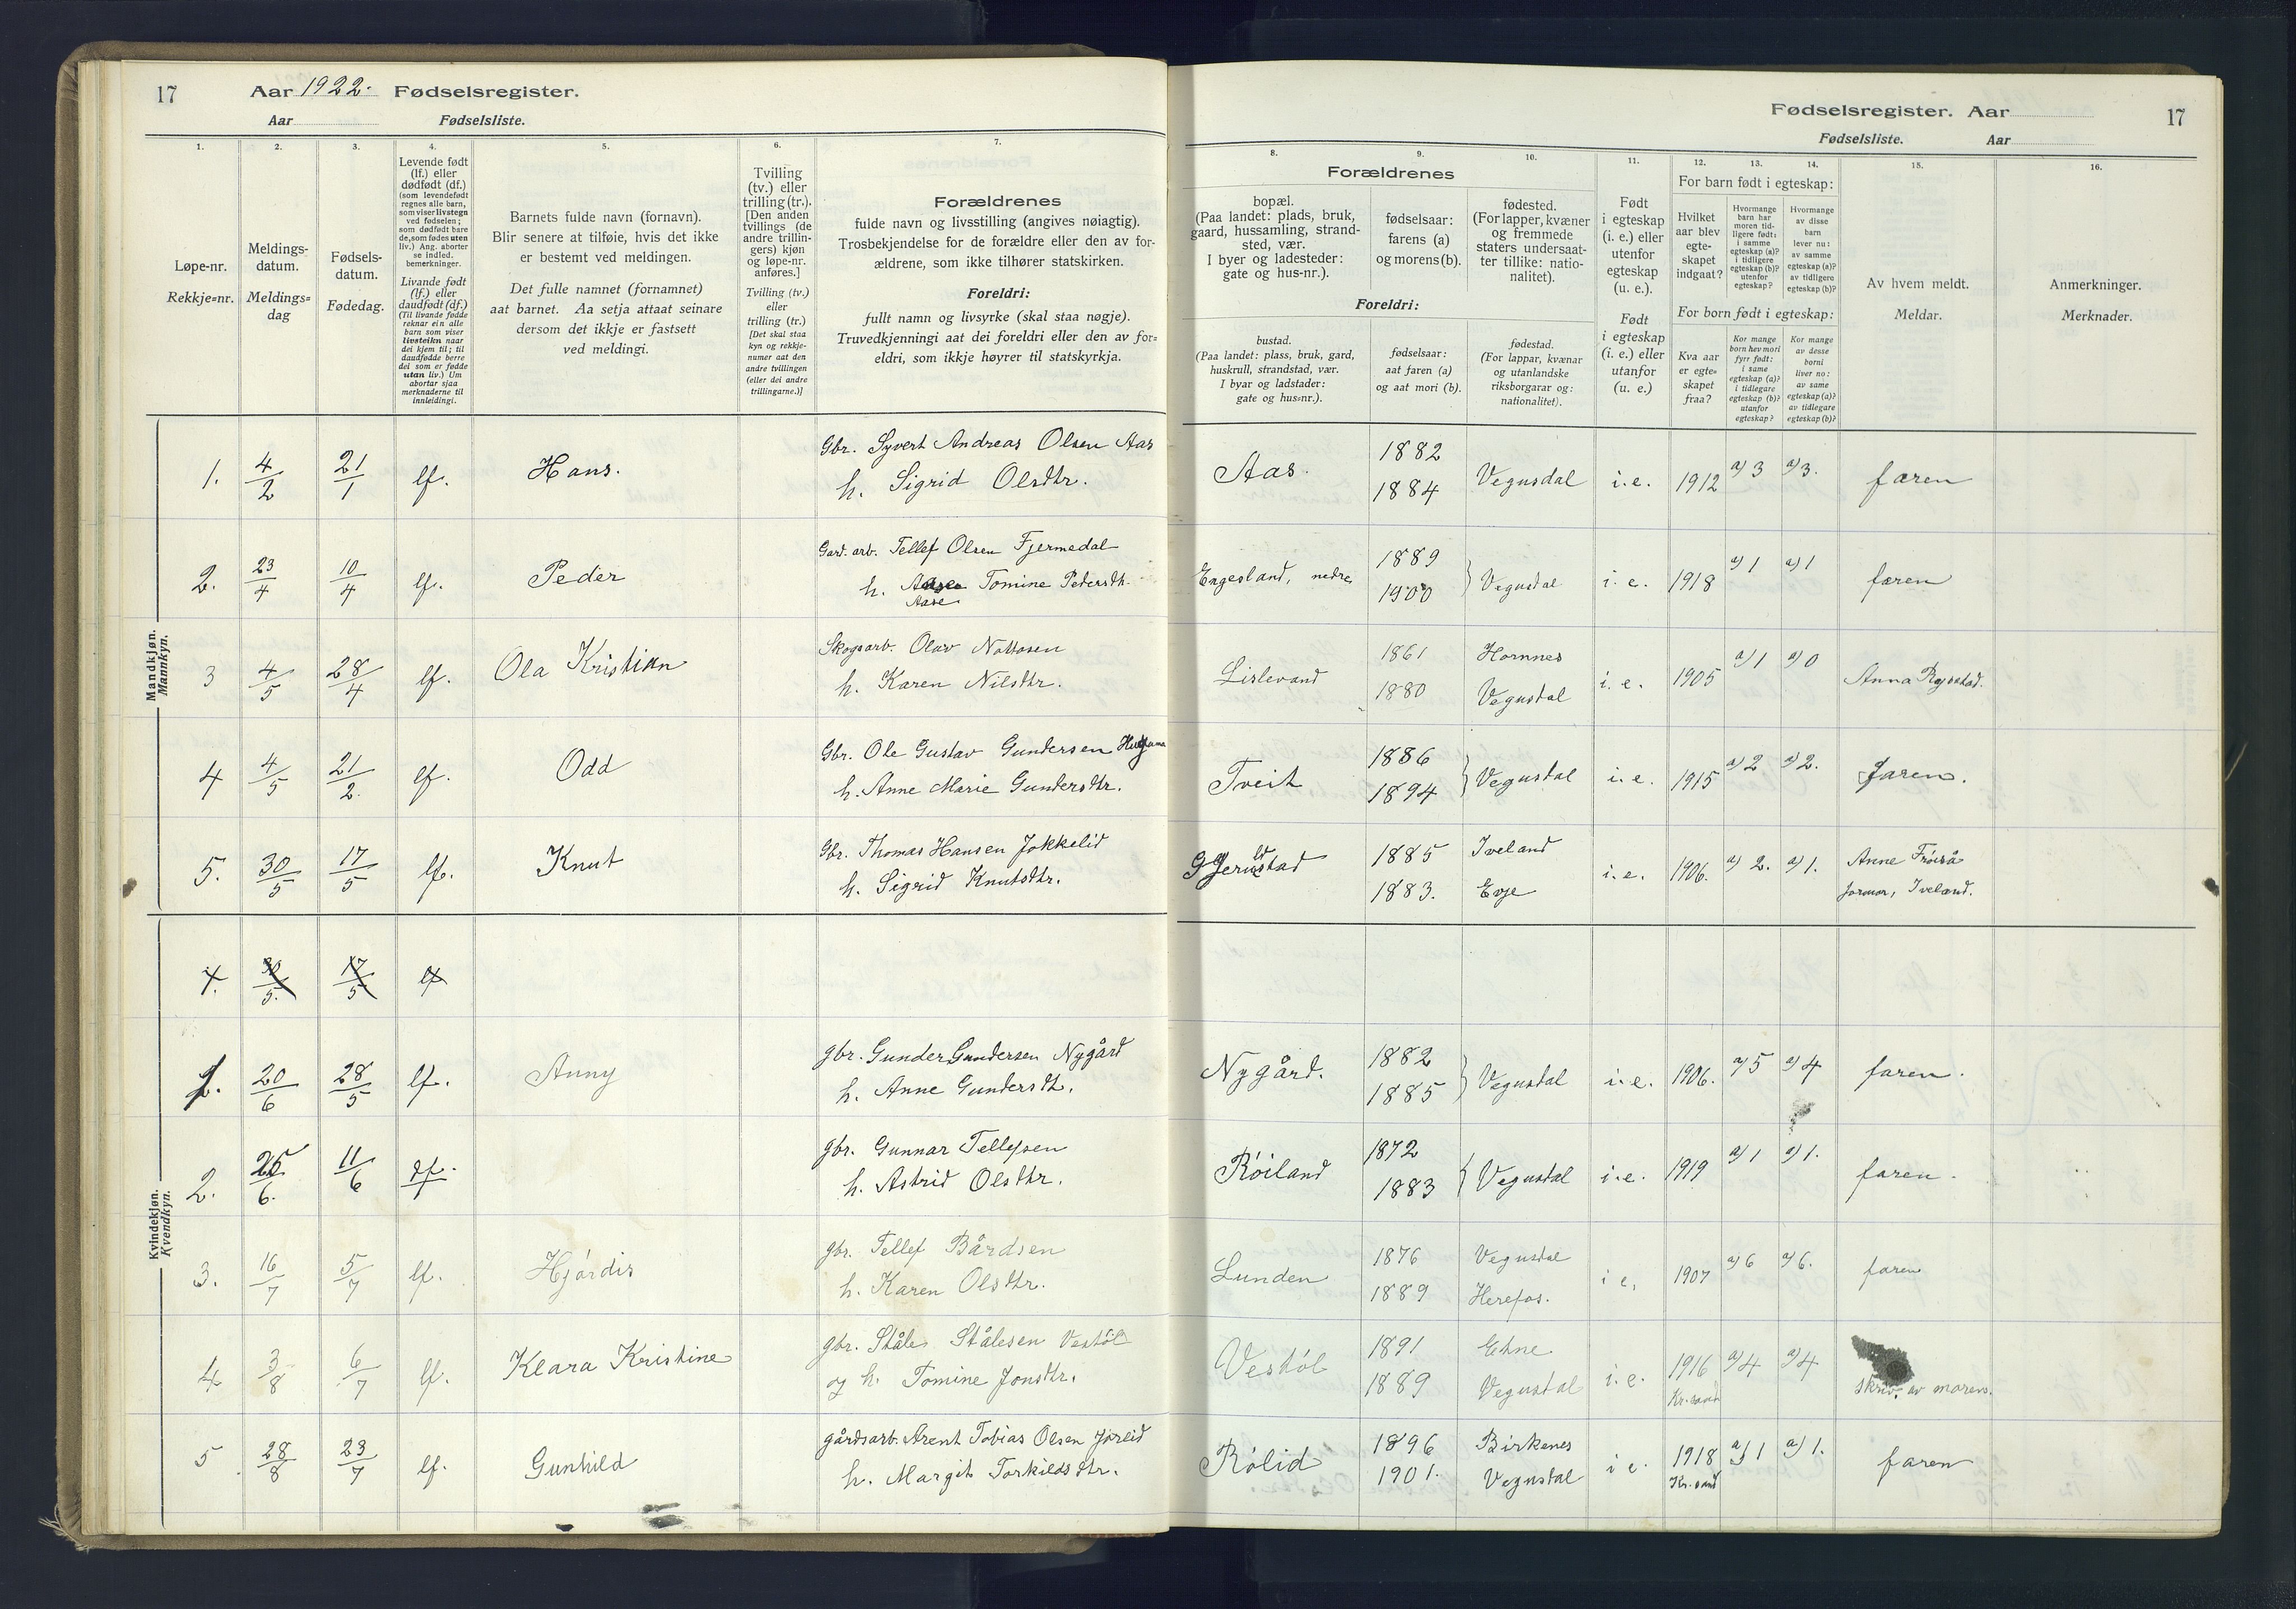 17 Aar 1922. Fødselsregister.
Aar Fødselsliste.
1. 2. 3. 4. 5. 6. 7.
Løpe-nr.
Rekkje=nr.
Meldings-
datum.
Meldings=
dag
Fødsels-
datum.
Fødedag.
Levende født
(lf.) eller
dødfødt (df.)
(som levendefødt
regnes alle barn,
som viser livstegn
ved fødselen;
som dødfødt bare
de, som fødes uten
liv.) Ang. aborter
se indled.
bemerkninger.
Livande født
(lf.) eller
daudfødt (df.)
(Til livande fødde
reknar ein alle
barn som viser
livsteikn naar
dei kjem til; til
daudfødde berre
dei som er fødde
utan liv.) Um
abortar sjaa
merknaderne til
innleidingi.
Barnets fulde navn (fornavn).
Blir senere at tilføie, hvis det ikke
er bestemt ved meldingen.
Det fulle namnet (fornamnet)
aat barnet. Aa setja attaat seinare
dersom det ikkje er fastsett
ved meldingi.
Tvilling
(tv.) eller
trilling (tr.).
[Den anden
tvillings (de
andre trillin-
gers) kjøn
og løpe-nr.
anføres.]
Tvilling (tv.)
eller
trilling (tr.)
[Det skal staa
kyn og rekkje-
numer aat den
andre tvillingen
(eller dei andre
trillingarne.)]
Forældrenes
fulde navn og livsstilling (angives nøiagtig).
Trosbekjendelse for de forældre eller den av for-
ældrene, som ikke tilhører statskirken.
Foreldri:
fullt namn og livsyrke (skal staa nøgje).
Truvedkjenningi aat dei foreldri eller den av for=
eldri, som ikkje høyrer til statskyrkja.
Mandkjøn.
Mannkyn.
1. 4/2 21/1 lf. Hans. Gbr. Syvert Andreas Olsen Aas
h. Sigrid Olsdtr.
2. 23/4 10/4 lf. Peder Gard. arb. Tellef Olsen Fjermedal
h. Aase Tomine Pedersdtr.
Aase
3 4/5 28/4 lf. Ola Kristian Skogsarb. Olav Nottosen
h. Karen Nilsdtr.
4 4/5 21/2 lf. Odd Gbr. Ole Gustav Gundersen
h. Anne Marie Gundersdtr.
5. 30/5 17/5 lf. Knut Gbr. Thomas Hansen Jokkelid
h. Sigrid Knutsdtr.
Kvindekjøn.
Kvendkyn.
1. 30/5. 17/5 lf
1. 20/6 28/5 lf. Anny gbr. Gunder Gundersen Nygård
h. Anne Gundersdt.
2. 25/6. 11/6 df. gbr. Gunnar Tellefsen
h. Astrid Olsdtr.
3. 16/7 5/7 lf. Hjördis gbr. Tellef Bårdsen
h. Karen Olsdtr.
4 3/8 6/7 lf. Klara Kristine gbr. Ståle Stålesen Vestöl
og h. Tomine Jonsdtr.
5 28/8 23/7 lf. Gunhild gårdsarb. Arent Tobias Olsen
h. Margit Torkildsdtr.
Fødselsregister. Aar 17
Fødselsliste. Aar
8. 9. 10. 11. 12. 13. 14. 15. 16.
Forældrenes
bopæl.
(Paa landet: plads, bruk,
gaard, hussamling, strand-
sted, vær.
I byer og ladesteder:
gate og hus-nr.).
fødselsaar:
farens (a)
og morens (b).
fødested.
(For lapper, kvæner
og fremmede
staters undersaat-
ter tillike: natio-
nalitet).
Foreldri:
bustad.
(Paa landet: plass, bruk, gard,
huskrull, strandstad, vær.
I byar og ladstader:
gate og hus=nr.).
fødselsaar:
aat faren (a)
og aat mori (b).
fødestad.
(For lappar, kvænar
og utanlandske
riksborgarar og:
nationalitet).
Født
i egteskap
(i. e.) eller
utenfor
egteskap
(u. e.).
Født
i egteskap
(i. e.) eller
utanfor
(u. e.)
For barn født i egteskap:
Hvilket
aar blev
egte-
skapet
indgaat?
Hvormange
barn har
moren tid-
ligere født:
i samme
egteskap (a)?
i tidligere
egteskap (b)?
utenfor
egteskap?
Hvormange
av disse
barn
lever nu:
av samme
egteskap (a)?
av tidligere
egteskap (b)?
For born født i egteskap:
Kva aar
er egte-
skapet
fraa?
Kor mange
born hev mori
fyrr født:
i same
egteskap (a)?
i tidlegare
egteskap (b)?
utanfor
egteskap?
Kor mange
av desse
borni
liver no:
av same
egteskap (a)?
av tidlegare
egteskap (b)?
Av hvem meldt.
Meldar.
Anmerkninger.
Merknader.
Aas. 1882
1884 Vegusdal i. e. 1912 a) 3 a) 3. faren
Engesland, nedre 1889
1900 } Vegusdal i. e. 1918 a) 1 a) 1 faren
Lislevand 1861 Hornnes
1880 Vegusdal i. e. 1905 a) 1 a) 0 Anna Rysstad.
Tveit 1886
1894 } Vegusdal i. e. 1915 a) 2 a) 2. faren.
1885 Iveland
1883. Evje i. e. 1906. a) 2. a) 1. Anne Fröiså
jormor, Iveland.
Nygård. 1882
1885 } Vegusdal i. e. 1906. a) 5 a) 4 faren.
Röiland 1872
1883 { Vegusdal i. e. 1919 a) 1 a) 1. faren.
Lunden 1876 Vegusdal
1889 Herefos. i e. 1907 a) 6 a) 6. faren
Vestöl 1891 Etne
1889 Vegusdal i. e. 1916 a) 4 a) 4
Kr.sand skriv. av moren.
Rölid 1896 Birkenes
1901. Vegusdal i e. 1918 a) 1 a) 1. faren
Kr.sand